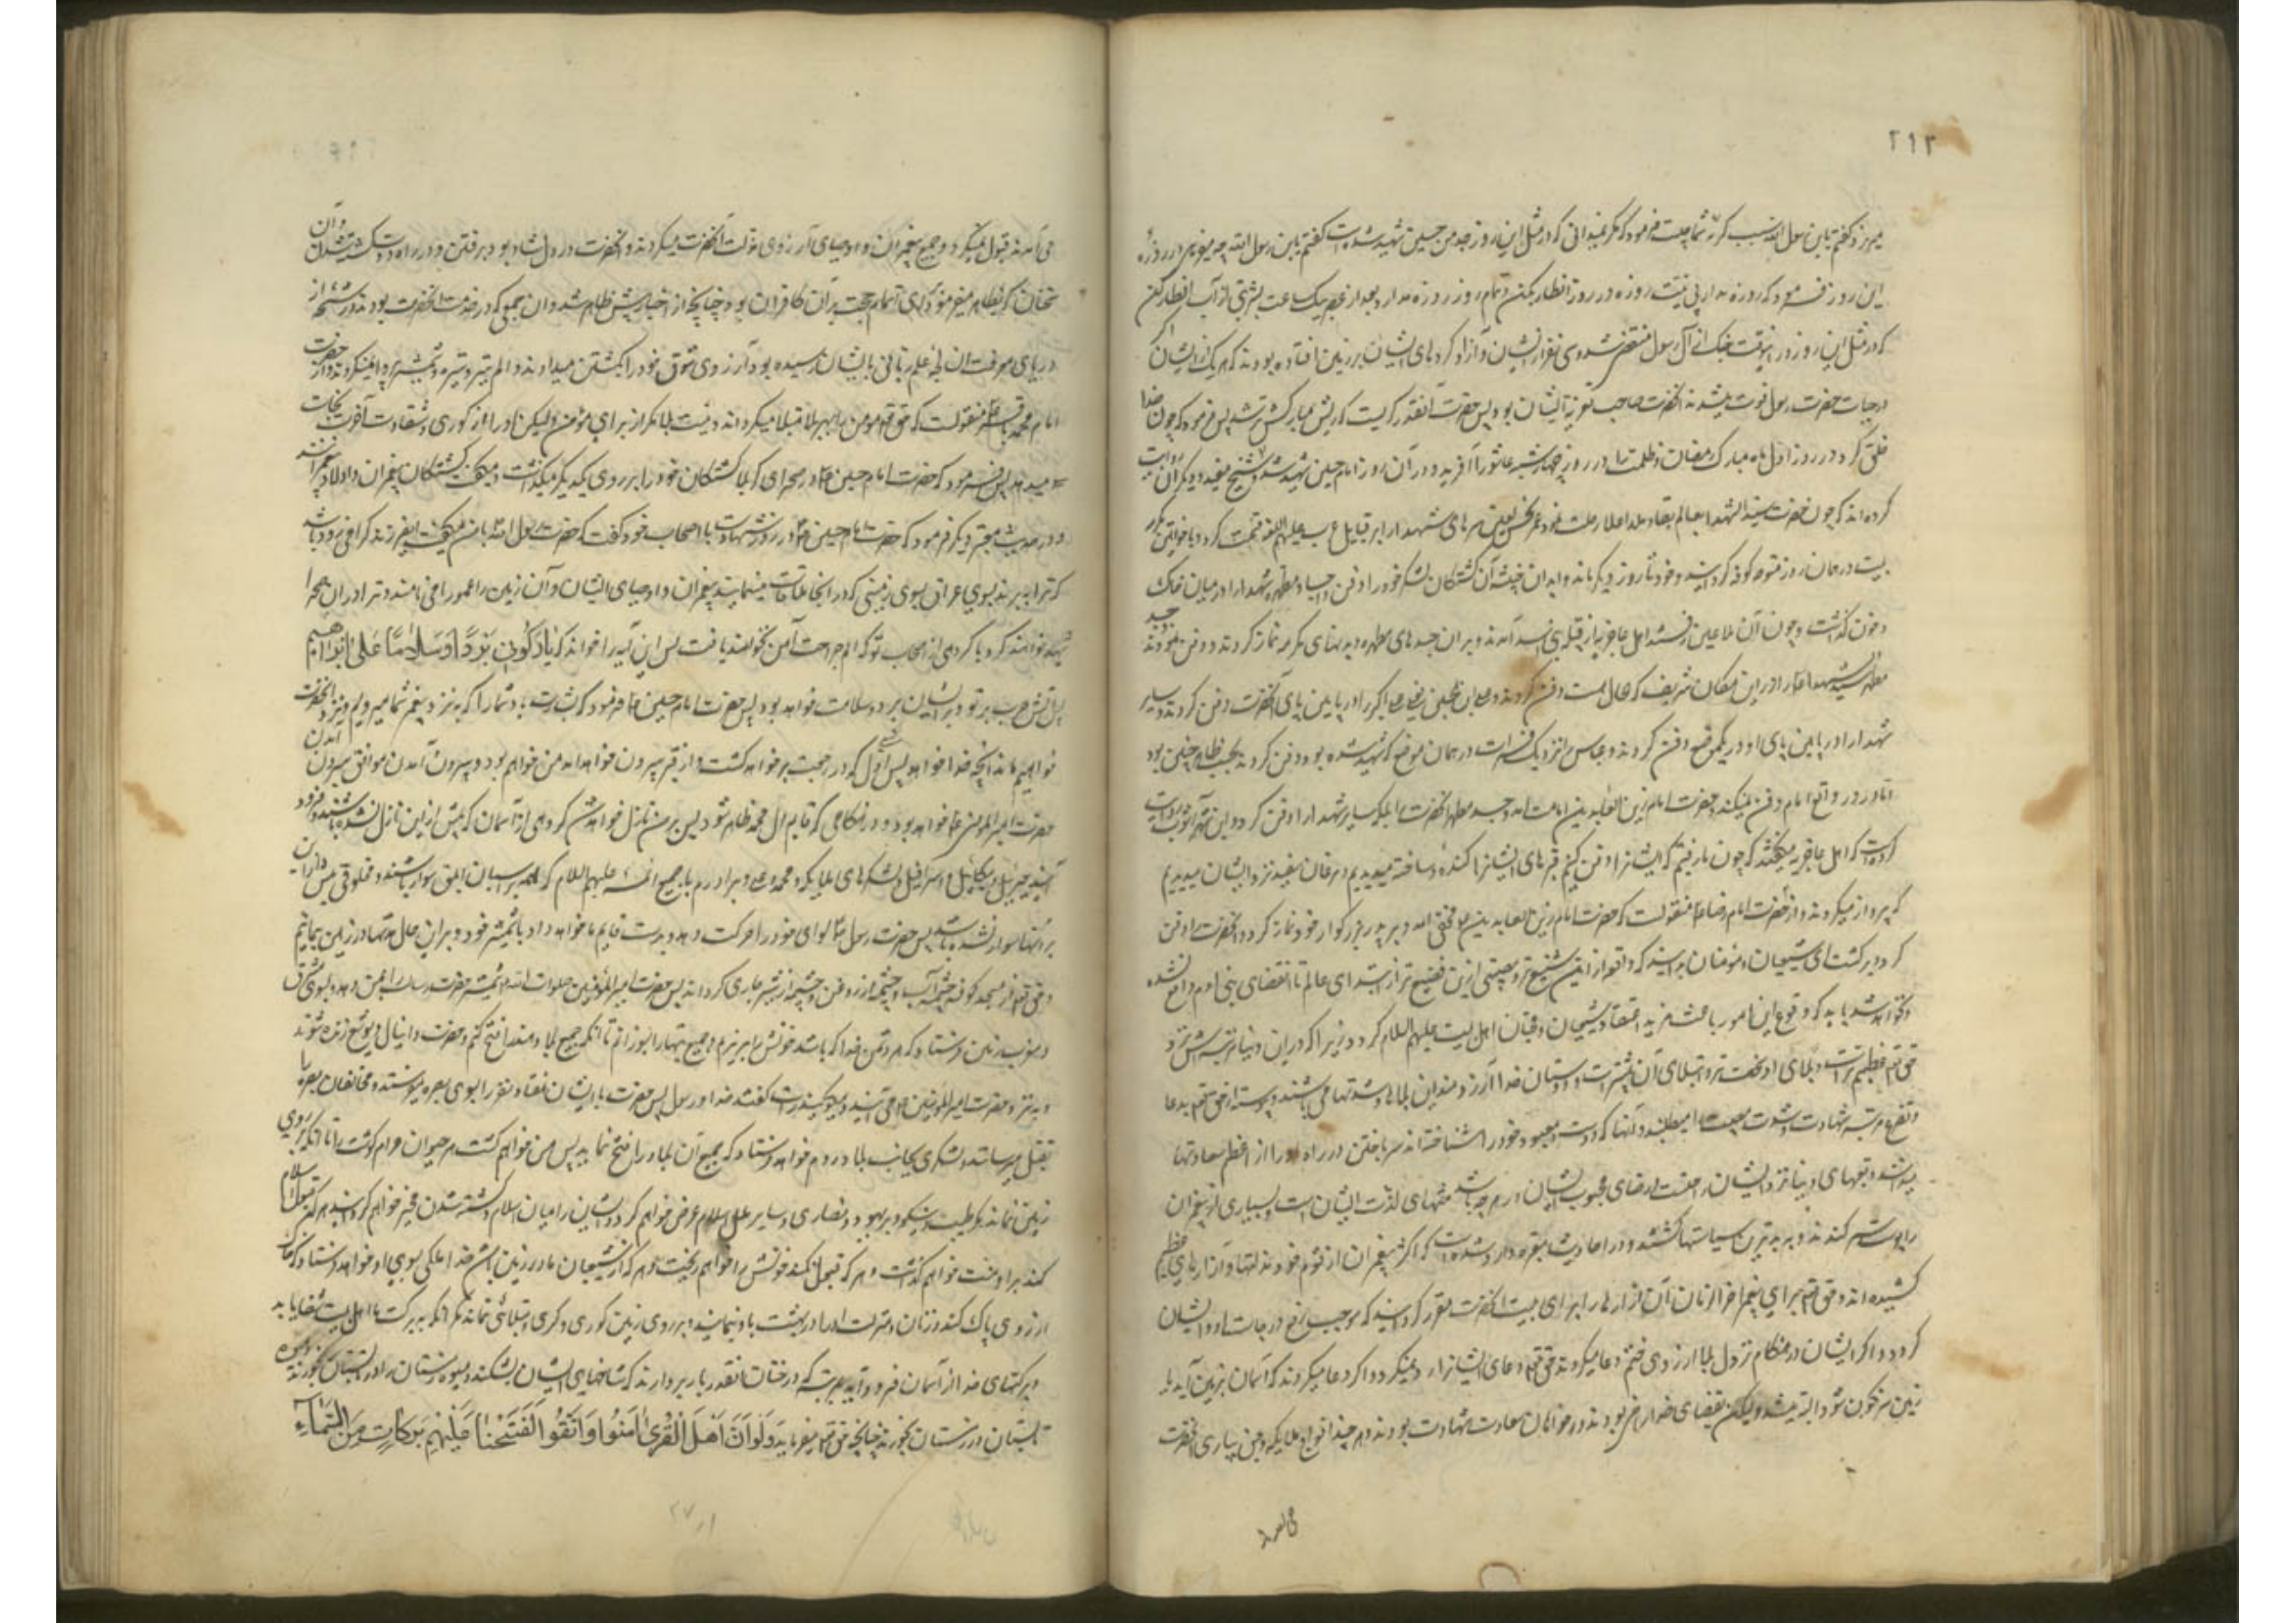 ۲۱۲
میریزد گفتم یابن رسول الله سبب گریهٔ شما چیست فرمود که مگر نمیدانی که در مثل این روز جدم حسین شهید شده است گفتم یابن رسول الله چه میفرمایی در روزهٔ
این روز فرمود که روزه بدار بی نیت روزه و در روز افطار بکن و تمام روز روزه مدار و بعد از عصر بیک ساعت بشربتی از آب افطار کن
که در مثل این روز در اینوقت جنگ از آل رسول منقضی شد و سی نفر از ایشان و آزاد کردهای ایشان بر زمین افتاده بودند که هر یک از ایشان اگر
در حیات حضرت رسول فوت میشدند آنحضرت صاحب تعزیهٔ ایشان بود پس حضرت آنقدر گریست که ریش مبارکش تر شد پس فرمود که چون خدا
خلق کرد در روز اول ماه مبارک رمضان و ظلمت را در روز چهارشنبه عاشورا آفرید و در آن روز امام حسین شهید شد و شیخ مفید و دیگران روایت
کرده اند که چون حضرت سید الشهدا بعالم بقا و ملاء اعلا رحلت نمود عمر نحس لعین سرهای شهدا را بر قبایل عرب علیهم اللعنة قسمت کرد و با خولی
در همان روز متوجه کوفه گردانید و خود تا روز دیگر ماند و ابدان خبیثهٔ آن کشتگان لشکر خود را دفن و اجساد مطهره شهدا را در میان خاک
و خون گذاشت و چون آن ملاعین رفتند اهل غاضریه از قبیله بنی اسد آمدند و بر ان جسدهای مطهره و بدنهای مکرمه نماز کردند و دفن نمودند جسد
مطهر سید شهدا را در این مکان شریف که حال هست دفن کردند و علی بن الحسین یعنی علی اکبر را در پایین پای آنحضرت دفن کردند و سایر
شهدا را در پایین پای او در یکموضع دفن کردند و عباس را نزدیک فرات در همان موضع که شهید شده بود دفن کردند بحسب ظاهر چنین بود
اما در واقع امام را دفن نمیکند مگر امام حضرت امام زین العابدین بامامت آمد و جسد مطهر آنحضرت را بلکه سایر شهدا را دفن کرد و ابن شهرآشوب روایت
کرده است که اهل غاضریه میگفتند که چون ما رفتیم که ایشانرا دفن کنیم قبرهای ایشانرا کنده و ساخته میدیدیم و مرغان سفید نزد ایشان میدیدیم
که پرواز میکردند و از حضرت امام رضا منقولست که حضرت امام زین العابدین ع مخفی آمد و بر پدر بزرگوار خود نماز کرد و آنحضرت را دفن
کرد و برگشت ای شیعیان و مؤمنان بدانید که واقعهٔ از این شنیع تر و مصیبتی ازین فضیع تر از ابتدای عالم تا انقضای بنی آدم واقع نشده
و نخواهد شد باید که وقوع این امور باعث مزید اعتقاد شیعیان و محبان اهل بیت علیهم السلام گردد زیرا که در ان دنیا هر که مرتبه اش نزد
حق تعالی عظیم تر است بلای او سخت تر و ابتلای آن بیشتر است و دوستان خدا آرزومند این بلاها و شدتها می باشند و پیوسته از حق تعالی بدعا
و تضرع مرتبه شهادت و شدت مصیبت را میطلبند و آنها که دوست و معبود خود را شناخته اند سر باختن در راه او را از اعظم سعادتها
میدانند و تعبهای دنیا نزد ایشان راحتست و رضای محبوب ایشان در هر چه باشد منتهای لذت ایشانست و بسیاری از پیغمبران
را پوست سر کندند و به بدترین سیاستها کشتند و در احادیث معتبره وارد شده است که اکثر پیغمبران از قوم خود مذلتها و آزارهای عظیم
کشیده اند و حق تعالی برای پیغمبر آخر الزمان آن آزارها را برای اهل بیت آنحضرت مقرر گردانید که موجب رفع درجات او و ایشان
گردد و اگر ایشان در هنگام نزول بلا از روی حتم دعا میکردند حق تعالی دعای ایشانرا رد نمیکرد و اگر دعا میکردند که آسمان بزمین آید یا
زمین سرنگون شود البته میشد ولیکن بقضای خدا راضی بودند و خواهان سعادت شهادت بودند و هر چند افواج ملایکه و جن بیاری آنحضرت
می آمدند قبول نمیکرد و جمیع پیغمبران و اوصیای آرزوی منزلت آنحضرت میکردند و آنحضرت در دل شاد بود برفتن و در راه دوست کشته شدن و آن
سخنان که بظاهر میفرمود برای اتمام حجت بر آن کافران بود چنانچه از اخبار پیش ظاهر شد و ان جمعی که در خدمت آنحضرت بودند و رشحهٔ از
دریای معرفت ان علم ربانی بایشان رسیده بود از روی شوق خود را بکشتن میدادند و الم تیر و نیزه و شمشیر پروا نمیکردند و از حضرت
امام محمد باقر ع منقولست که حق تعالی مومن را بهر بلا مبتلا میگرداند و نیست بلا مگر از برای مؤمن ولیکن او را از کوری و شقاوت آخرت نجات
میدهد پس فرمود که حضرت امام حسین ع در صحرای کربلا کشتگان خود را بر روی یکدیگر میگذاشت و میگفت کشتگان پیغمبران و اولاد پیغمبرانند
و در حدیث معتبر دیگر فرمود که حضرت امام حسین ع در روز شهادت با اصحاب خود گفت که حضرت رسول الله بامن میگفت ایفرزند گرامی زود باشد
که ترا ببرند بسوی عراق بسوی زمینی که در انجا ملاقات مینمایند پیغمبران و اوصیای ایشان و آن زمین را عمورا می نامند و ترا در ان صحرا
شهید خواهند کرد با گروهی از اصحاب تو که الم جراحت آهن نخواهند یافت پس این آیه را خواند که یَا نَارُ کُونِی بَرْدًا وَسَلَامًا عَلَی إِبْرَاهِیمَ
پس آتش حرب بر تو و بر ایشان برد و سلامت خواهد بود پس حضرت امام حسین ع فرمود که بشارت باد شما را که به نزد پیغمبر شما میرویم و نزد آنحضرت
خواهیم ماند آنچه خدا خواهد پس اول کسی که در رجعت برخواهد گشت و از قبر بیرون خواهد امد من خواهم بود و بیرون آمدن موافق بیرون آمدن
حضرت امیر المومنین ع خواهد بود در هنگامی که قایم ال محمد ظاهر شود پس بر من نازل خواهد شد گروهی از آسمان که پیش ازین نازل نشده باشند و فرود
آیند جبرئیل و میکائیل و اسرافیل و لشکرهای ملایکه و محمد و علی و برادرم با جمیع ائمه علیهم السلام که همه بر اسبان ابلق سوار باشند و مخلوقی پیش از ان
بر انها سوار نشده باشد پس حضرت رسول ع لوای خود را حرکت دهد و بدست قایم ما خواهد داد با شمشیر خود و بران حال مدتها در زمین بمانیم
و حق تعالی از مسجد کوفه چشمهٔ آب و چشمهٔ از روغن و چشمهٔ از شیر جاری گرداند پس حضرت امیر المؤمنین صلوات الله شمشیر حضرت رسالت را بمن دهد و بسوی مشرق
و مغرب زمین فرستد که هر دشمن خدا که باشد خونش را بریزم و جمیع بتها را بسوزانم تا آنکه جمیع بلاد هند را فتح کنم و حضرت دانیال و یوشع زنده شوند
و به نزد حضرت امیر المؤمنین ع می آیند و میگویند راست گفتند خدا و رسول پس حضرت با ایشان هفتاد نفر را بسوی بصره میفرستند و مخالفان بصره را
بقتل میرساند و لشکری بجانب بلاد روم خواهد فرستاد که جمیع آن بلاد را فتح نماید پس من خواهم کشت هر حیوان حرام گوشت را تا انکه بر روی
زمین نماند مگر طیب و نیکو و بر یهود و نصاری و سایر ملل اسلام عرض خواهم کرد و ایشان را میان اسلام و کشته شدن مخیر خواهم گردانید هر که قبول اسلام
کند بر او منت خواهم گذاشت و هر که قبول نکند خونش را خواهم ریخت و هر که از شیعیان ما در زمین باشد خدا ملکی بسوی او خواهد فرستاد که خاک
از روی پاک کند و زنان و منزلت او را در بهشت باو نماید و بر روی زمین کوری و کری و مبتلائی نماند مگر انکه ببرکت ما اهل بیت شفا یابد
و برکتهای خدا از آسمان فرود آید بمرتبهٔ که درختان انقدر بار بردارند که شاخهای ایشان بشکند و میوه زمستان را در تابستان بخورند و میوه
تابستان در زمستان بخورند چنانچه حق تعالی میفرماید وَلَوْ أَنَّ أَهْلَ الْقُرَیٰ آمَنُوا وَاتَّقَوْا لَفَتَحْنَا عَلَیْهِم بَرَکَاتٍ مِنَ السَّمَاءِ